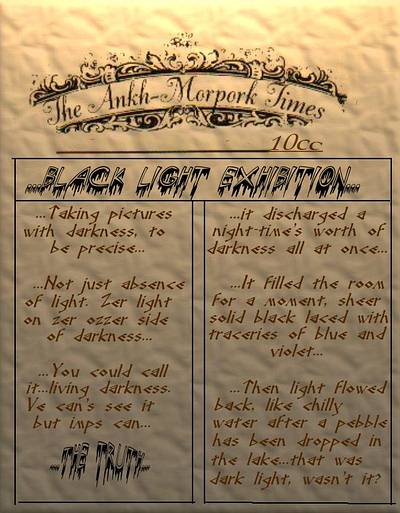 The Ankh-Morpork Times
10cc
...BLACK LIGHT EXHIBITION...
...Taking pictures
with darkness, to
be precise...
...Not just absence
of light. Zer light
on zer ozzer side
of darkness...
...You could call
it...living darkness.
Ve can's see it
but imps can...
...THE TRUTH...
...it discharged a
night-time's worth of
darkness all at once...
...It filled the room
for a moment, sheer
solid black laced with
traceries of blue and
violet...
...Then light flowed
back, like chilly
water after a pebble
has been dropped in
the lake...that was
dark light, wasn't it?